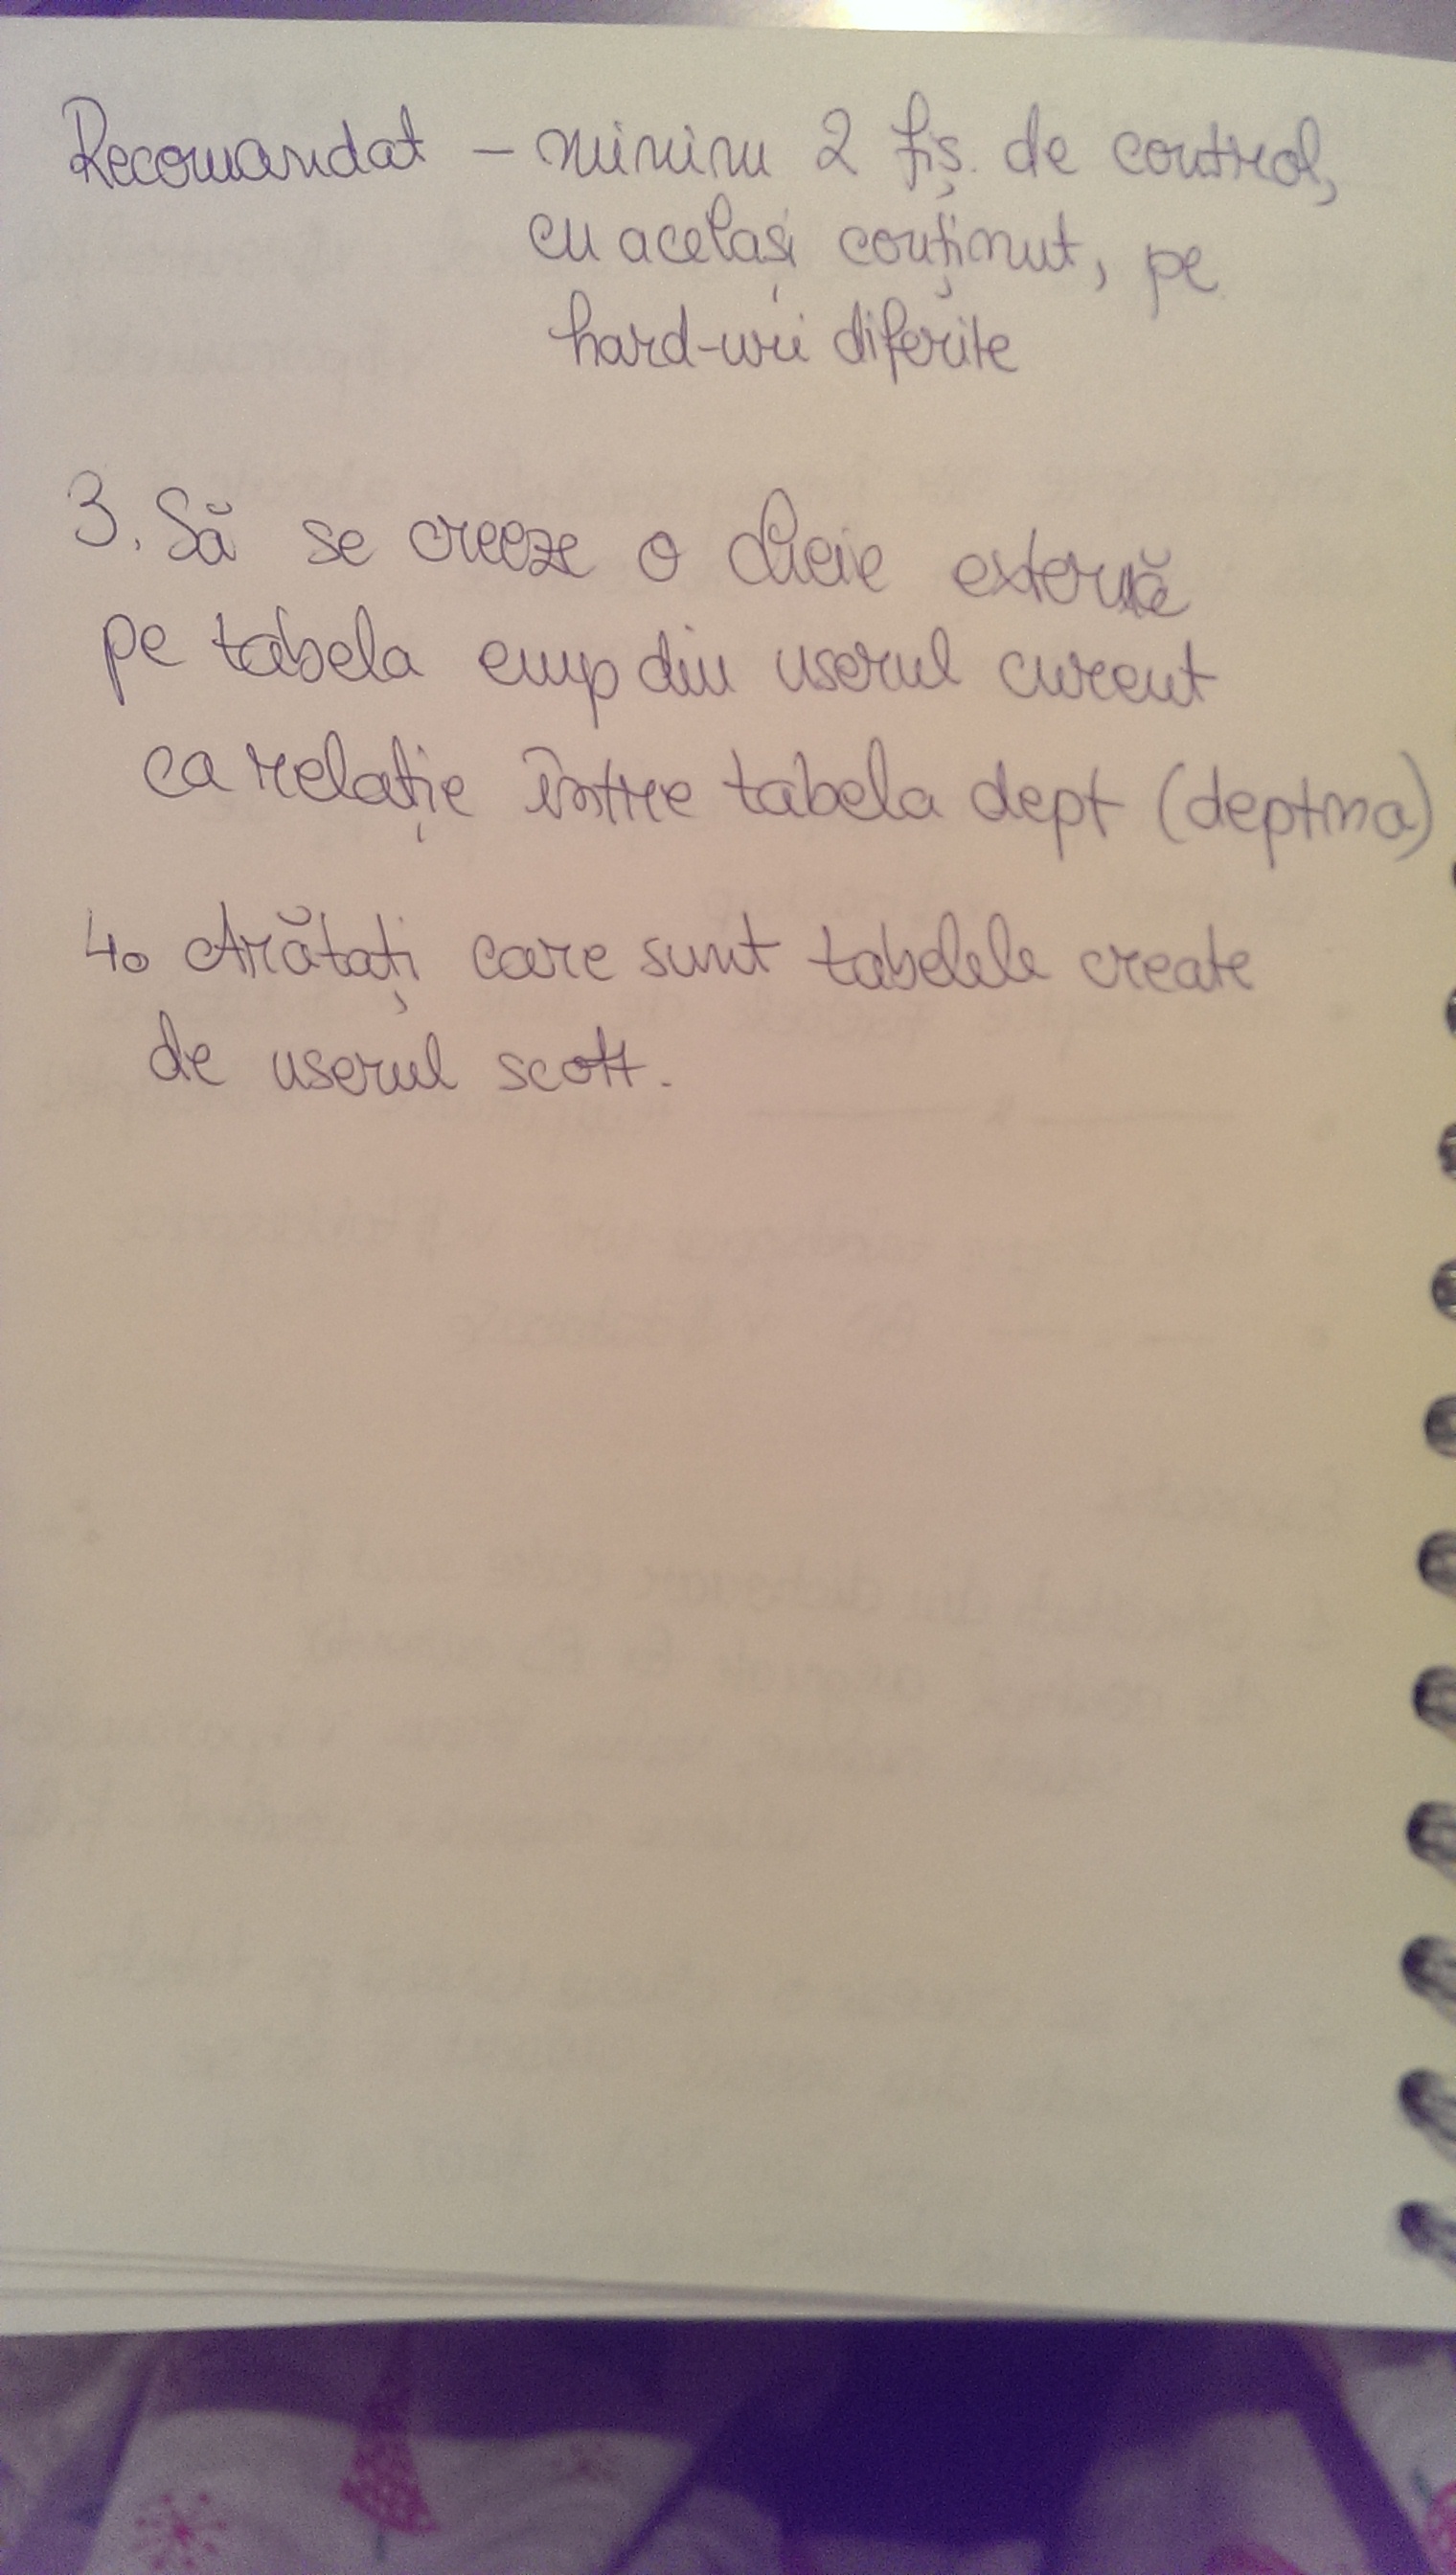 Recomandat - minim 2 fiș. de control,
cu același conținut, pe
hard-uri diferite
3. Să se creeze o cheie externă
pe tabela emp din userul curent
ca relație între tabela dept (deptno)
4. Arătați care sunt tabelele create
de userul scott.